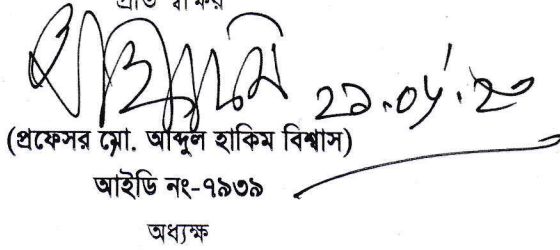 প্রতি স্বাক্ষর
২৯.০৮.২০
(প্রফেসর মো. আব্দুল হাকিম বিশ্বাস)
আইডি নং-৭৯৩৯
অধ্যক্ষ